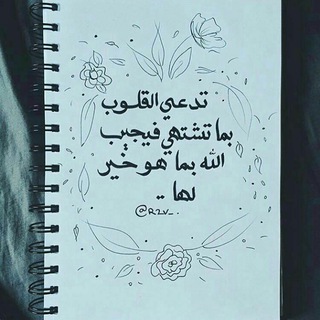 تدعي القلوب
بما تشتهي فيجيب
الله بما هو خير
لها ..
@R2V_